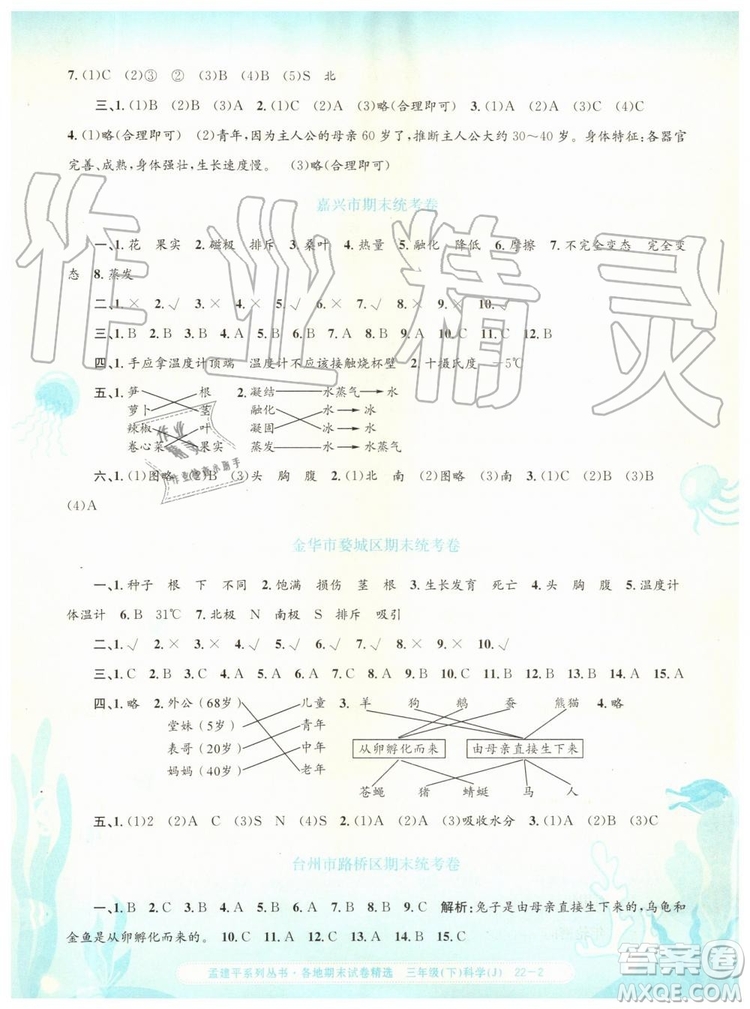 7. (1)C (2)③ ② (3)B (4)B (5)S 北
三、1. (1)B (2)B (3)A 2. (1)C (2)A (3)略(合理即可) 3. (1)B (2)C (3)A
4. (1)略(合理即可) (2)青年，因为主人公的母亲 60 岁了，推断主人公大约 30～40 岁。身体特征：各器官
完善、成熟，身体强壮，生长速度慢。 (3)略(合理即可)
嘉兴市期末统考卷
一、1. 花 果实 2. 磁极 排斥 3. 桑叶 4. 热量 5. 融化 降低 6. 摩擦 7. 不完全变态 完全变
态 8. 蒸发
二、1. × 2. √ 3. √ 4. × 5. √ 6. √ 7. × 8. × 9. × 10. √
三、1. B 2. B 3. A 4. B 5. A 6. B 7. A 8. B 9. C 10. C 11. C 12. B
四、1. 手应拿温度计顶端 温度计不应该接触烧杯壁 2. 十摄氏度 －5℃
五、1. 笋 根 2. 凝结 水蒸气 水
萝卜 茎 融化 水 冰
辣椒 叶 凝固 冰 水
卷心菜 果实 蒸发 水 水蒸气
六、1. (1)图略 (2)B (3)头 胸 腹 2. (1)北 南 (2)图略 (3)略 3. (1)C (2)B (3)B
(4)A
金华市婺城区期末统考卷
一、1. 种子 根 下 不同 2. 饱满 损伤 茎 根 3. 生长发育 死亡 4. 头 胸 腹 5. 温度计
体温计 6. B 31℃ 7. 北极 N 南极 S 排斥 吸引
二、1. √ 2. × 3. × 4. √ 5. √ 6. × 7. √ 8. × 9. × 10. √
三、1. C 2. B 3. A 4. A 5. C 6. B 7. C 8. A 9. A 10. B 11. C 12. B 13. C 14. C 15. A
四、1. 略 2. 外公(68岁) 儿童 3. 羊 狗 鹅 蚕 熊猫 4. 略
堂妹(5岁) 青年
表哥(20岁) 中年 从卵孵化而来 由母亲直接生下来
妈妈(40岁) 老年
苍蝇 猪 蜻蜓 马 人
五、1. (1)2 (2)A C A (3)S S 2. (1)A (2)C (3)吸收水分 3. (1)B (2)B (3)C
台州市路桥区期末统考卷
一、1. B 2. C 3. A 4. B 5. B 6. B 7. A 8. A 9. C 解析：兔子是由母亲直接生下来的，乌龟和
金鱼是从卵孵化而来的。 10. C 11. C 12. C 13. A 14. B 15. C
孟建平系列丛书·各地期末试卷精选 三年级(下)科学(J) 22－2
作业精灵
答案圈
MXQE.COM